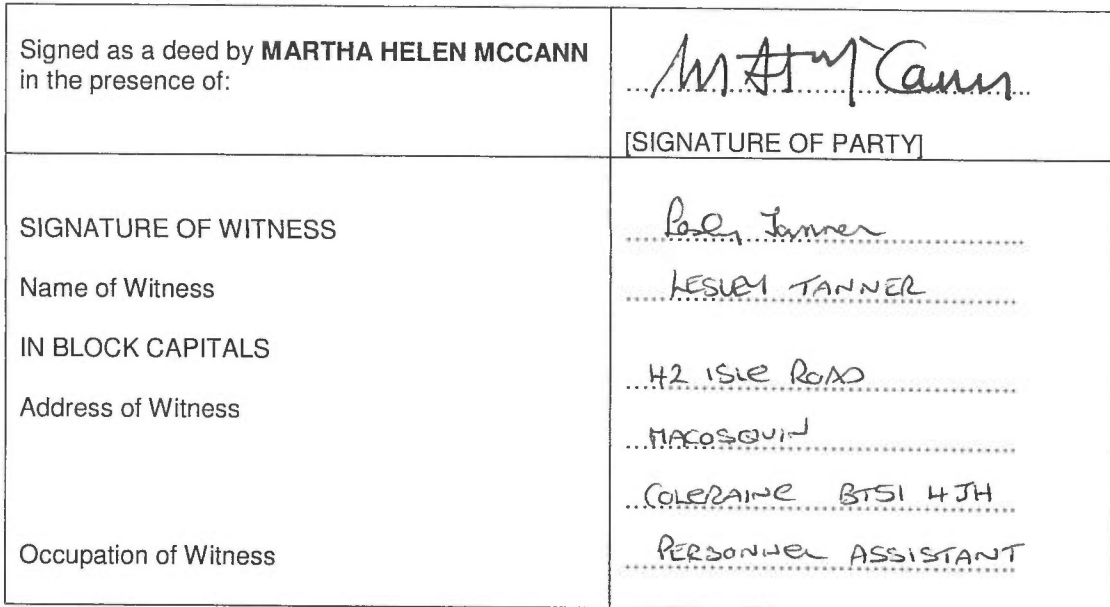 Signed as a deed by MARTHA HELEN MCCANN
in the presence of:
M H McCann
[SIGNATURE OF PARTY]
SIGNATURE OF WITNESS
Lesley Tanner
Name of Witness
LESLEY TANNER
IN BLOCK CAPITALS
42 ISLE ROAD
Address of Witness
MACOSQUIN
COLERAINE BT51 4JH
Occupation of Witness
PERSONNEL ASSISTANT